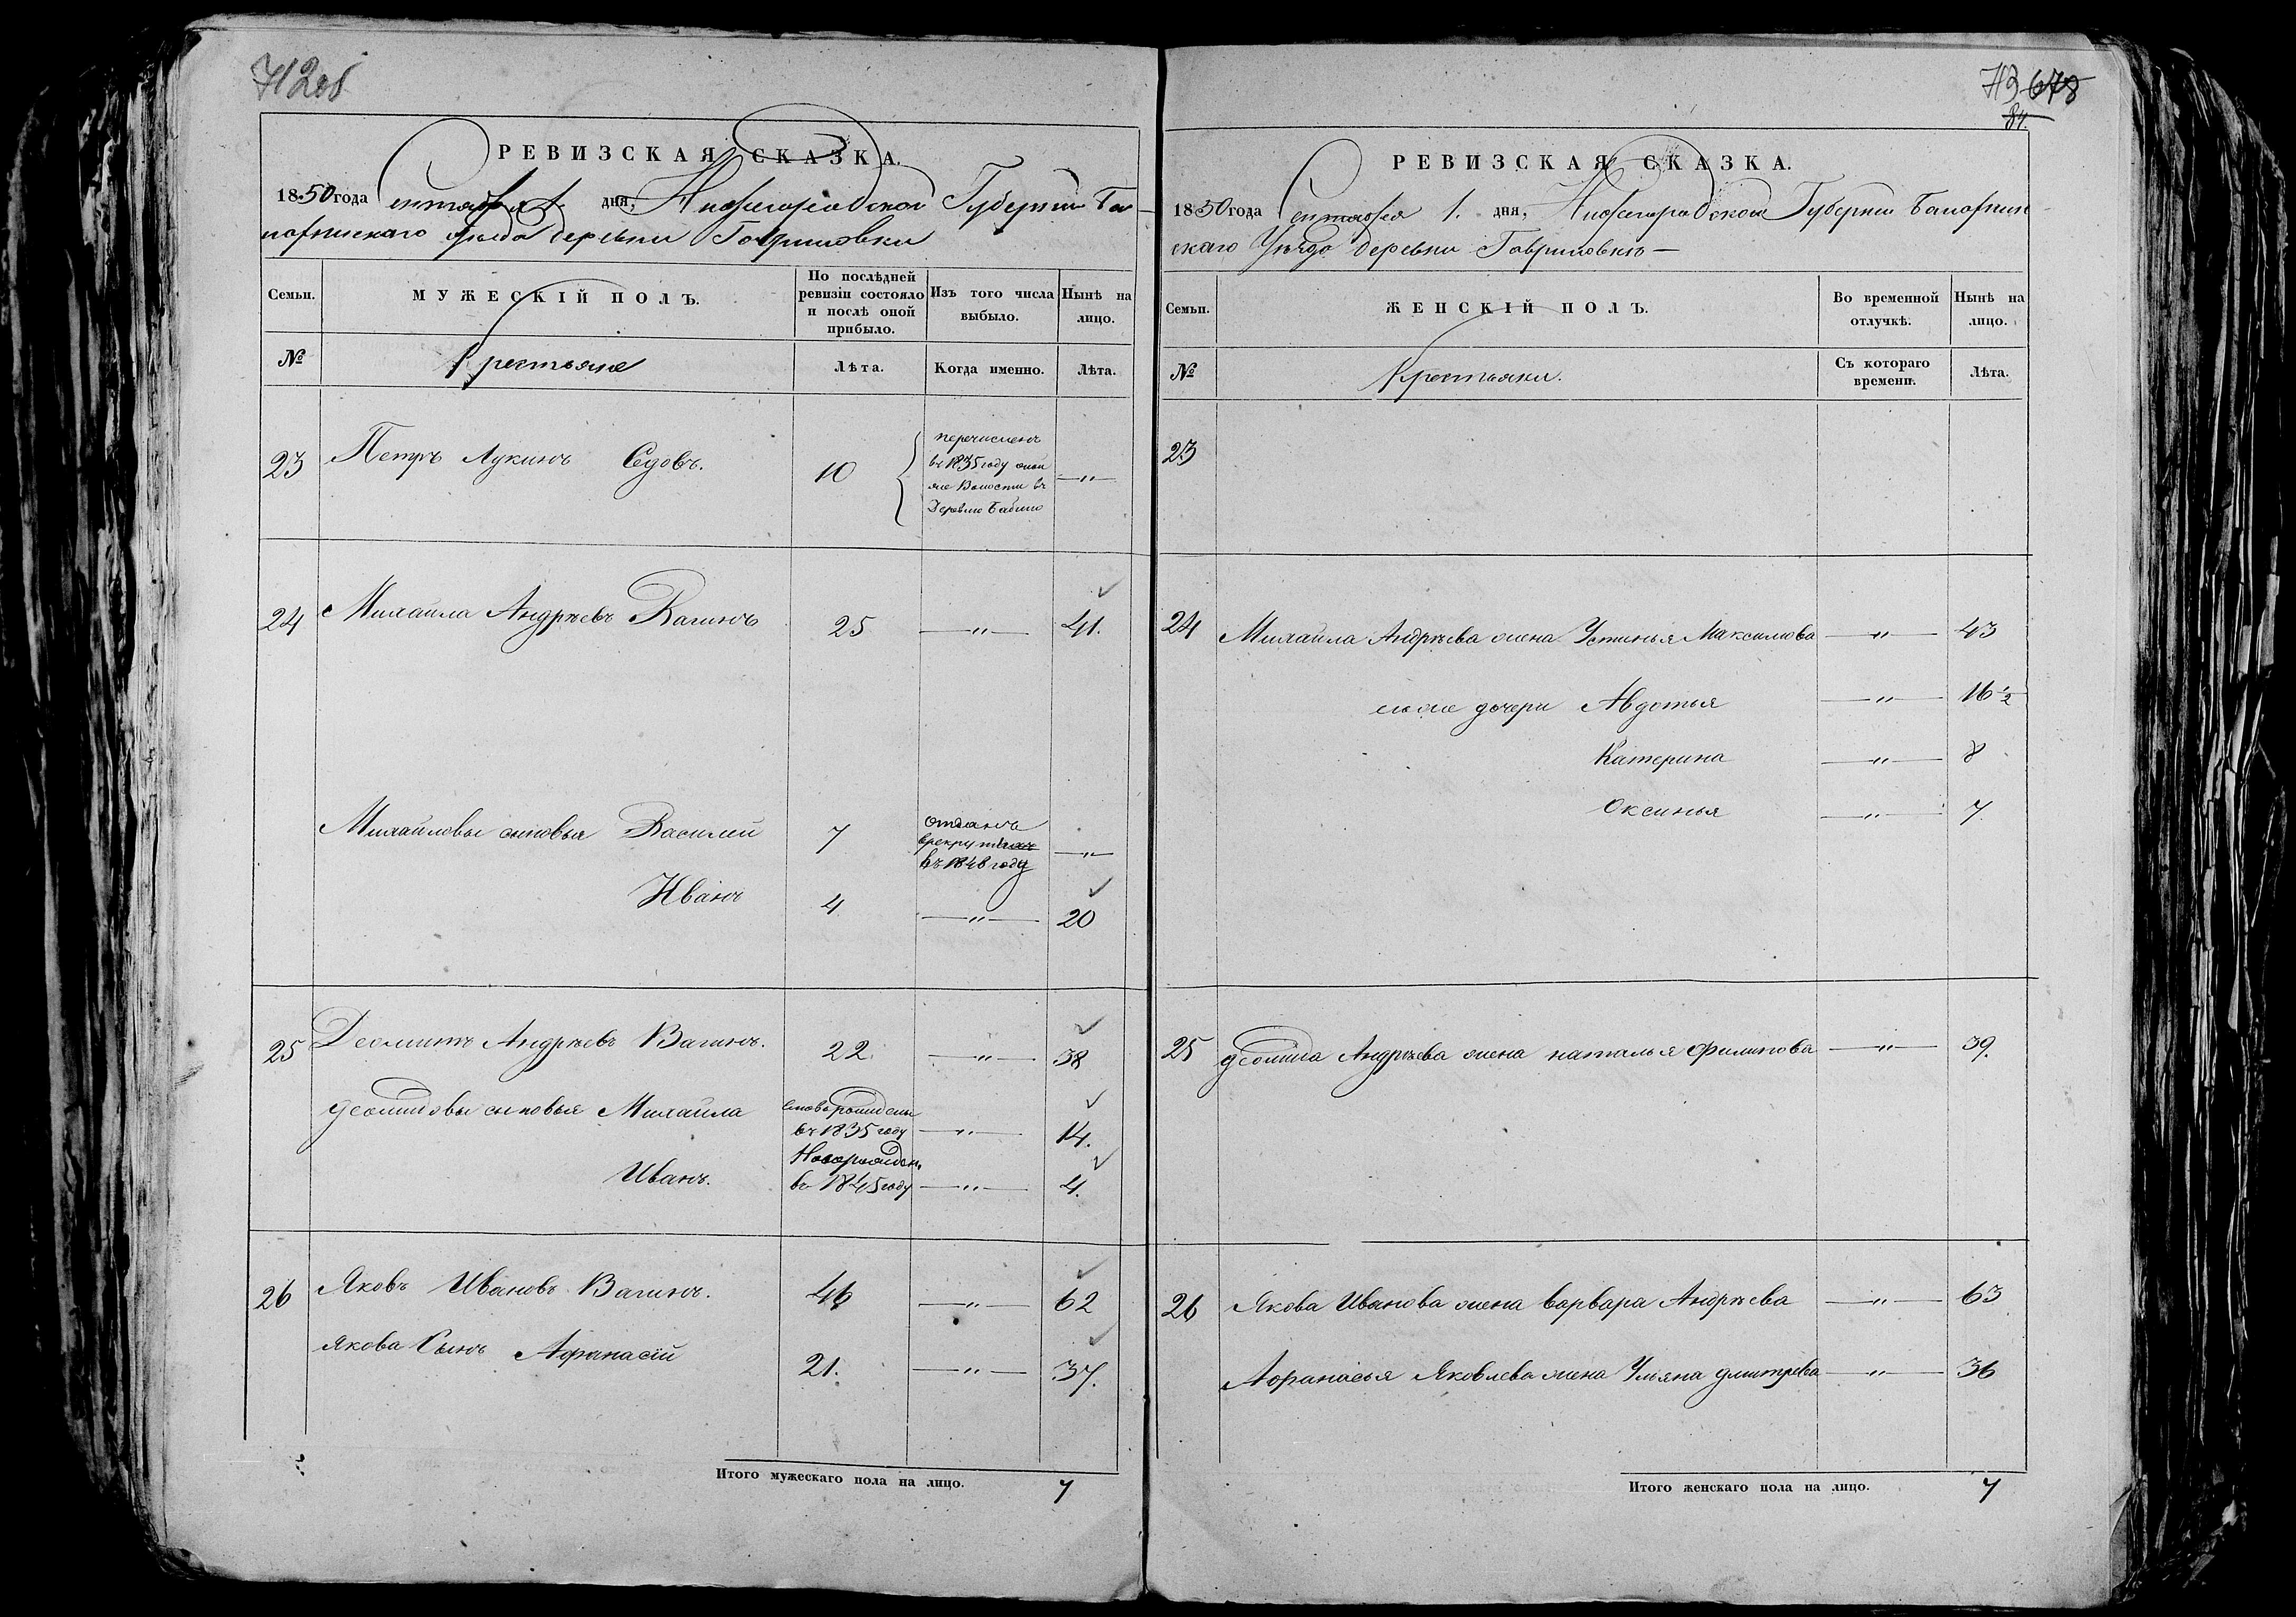 712об
РЕВИЗСКАЯ СКАЗКА.
1850 года Сентября 1. дня, Нижегородской Губернии Ба-
лахнинскаго уезда деревни Гавриловки
Семьи. МУЖЕСКІЙ ПОЛЪ. По послѣдней ревизіи состояло и послѣ оной прибыло. Изъ того числа выбыло. Нынѣ на лицо.
№ Крестьяне Лѣта. Когда именно. Лѣта.
23 Петръ Лукинъ Седовъ. 10 перечисленъ
въ 1835 году
же Волости въ —„—
Деревню Бабино
24 Михайла Андрѣевъ Вагинъ 25 —„— 41.
Михайловы сыновья Василий 7 отданъ
врекруты —„—
въ 1848 году
Иванъ 4 —„— 20
25 Деомитъ Андрѣевъ Вагинъ. 22. —„— 38
деомидовы сыновья Михайла
въ 1835 году —„— 14.
Иванъ. Новорожден.
въ 1845 году —„— 4.
26 Яковъ Ивановъ Вагинъ. 46 —„— 62
Якова Сынъ Афанасій 21. —„— 37.
Итого мужескаго пола на лицо. 7
713 678
84.
РЕВИЗСКАЯ СКАЗКА.
1850 года Сентября 1. дня, Нижегородской Губернии Балахнин
скаго Уѣзда деревни Гавриловкѣ —
Семьи. ЖЕНСКІЙ ПОЛЪ. Во временной отлучкѣ. Нынѣ на лицо.
№ Крестьянки. Съ котораго времени. Лѣта.
23
24 Михайла Андрѣева жена Устинья Максимова —„— 43
его же дочери Авдотья —„— 16 ½
Катерина —„— 8
Оксинья —„— 7
25 деомида Андрѣева жена наталья Филипова —„— 39.
26 Якова Иванова жена варвара Андрѣева —„— 63
Афанасья Яковлева жена Ульяна дмитрева —„— 36
Итого женскаго пола на лицо. 7